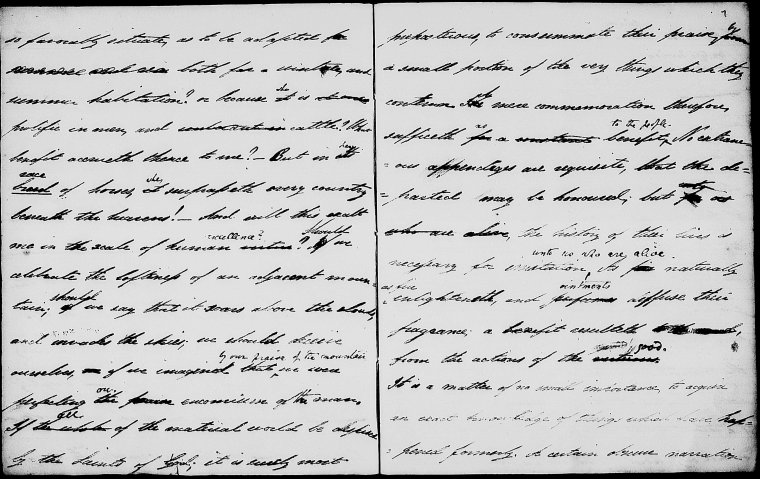 so formally situate, as to be adapted for
both for a winter, and
summer habitation? or because she is
prolific in men, and cattle? What
benefit accrueth thence to me? — But in her
race of horses, she surpasseth every country
beneath the heavens! — And will this exalt
me in the scale of human excellence? Should we
celebrate the loftiness of an adjacent moun-
tain; should we say that it soars above the clouds,
and invades the skies; we should deceive
ourselves, if we imagined that by our praise of the mountain we were
our encomium of the man.
If all of the material world be despised
by the Saints of God; it is surely most
7
preposterous, to consummate their praise, by
a small portion of the very things which they
contemn. The mere commemoration therefore,
sufficeth as a benefit to the people. No extrane-
ous appendages are requisite, that the de-
parted may be honoured; but
the history of their lives is
necessary for imitation, unto us who are alive. As naturally
as fire enlighteneth, and ointments diffuse their
fragrance; a benefit resulteth
from the actions of the good.
It is a matter of no small importance, to acquire
an exact knowledge of things which have hap-
pened formerly. A certain obscure narration